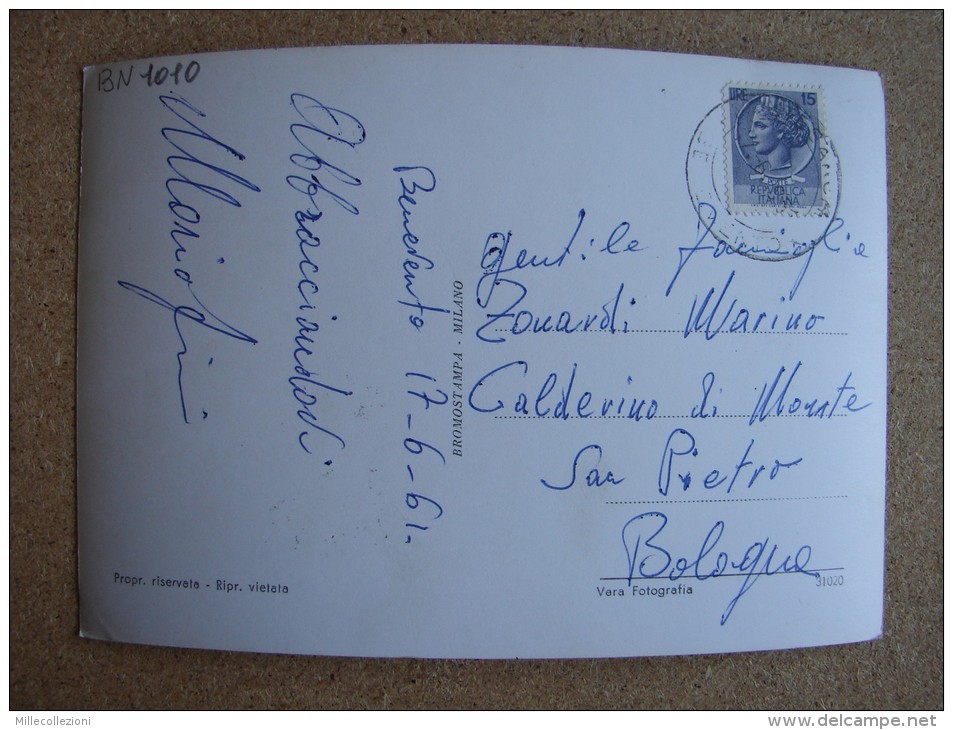 BN 1010
Benevento 17-6-61.
Abbracciandovi
BROMOSTAMPA - MILANO
LIRE 15
POSTE
REPVBBLICA
ITALIANA
Gentile famiglia
Zonardi Marino
Calderino di Monte
San Pietro
Bologna
Propr. riservata - Ripr. vietata
Vera Fotografia
31020
Millecollezioni
http://www.delcampe.net